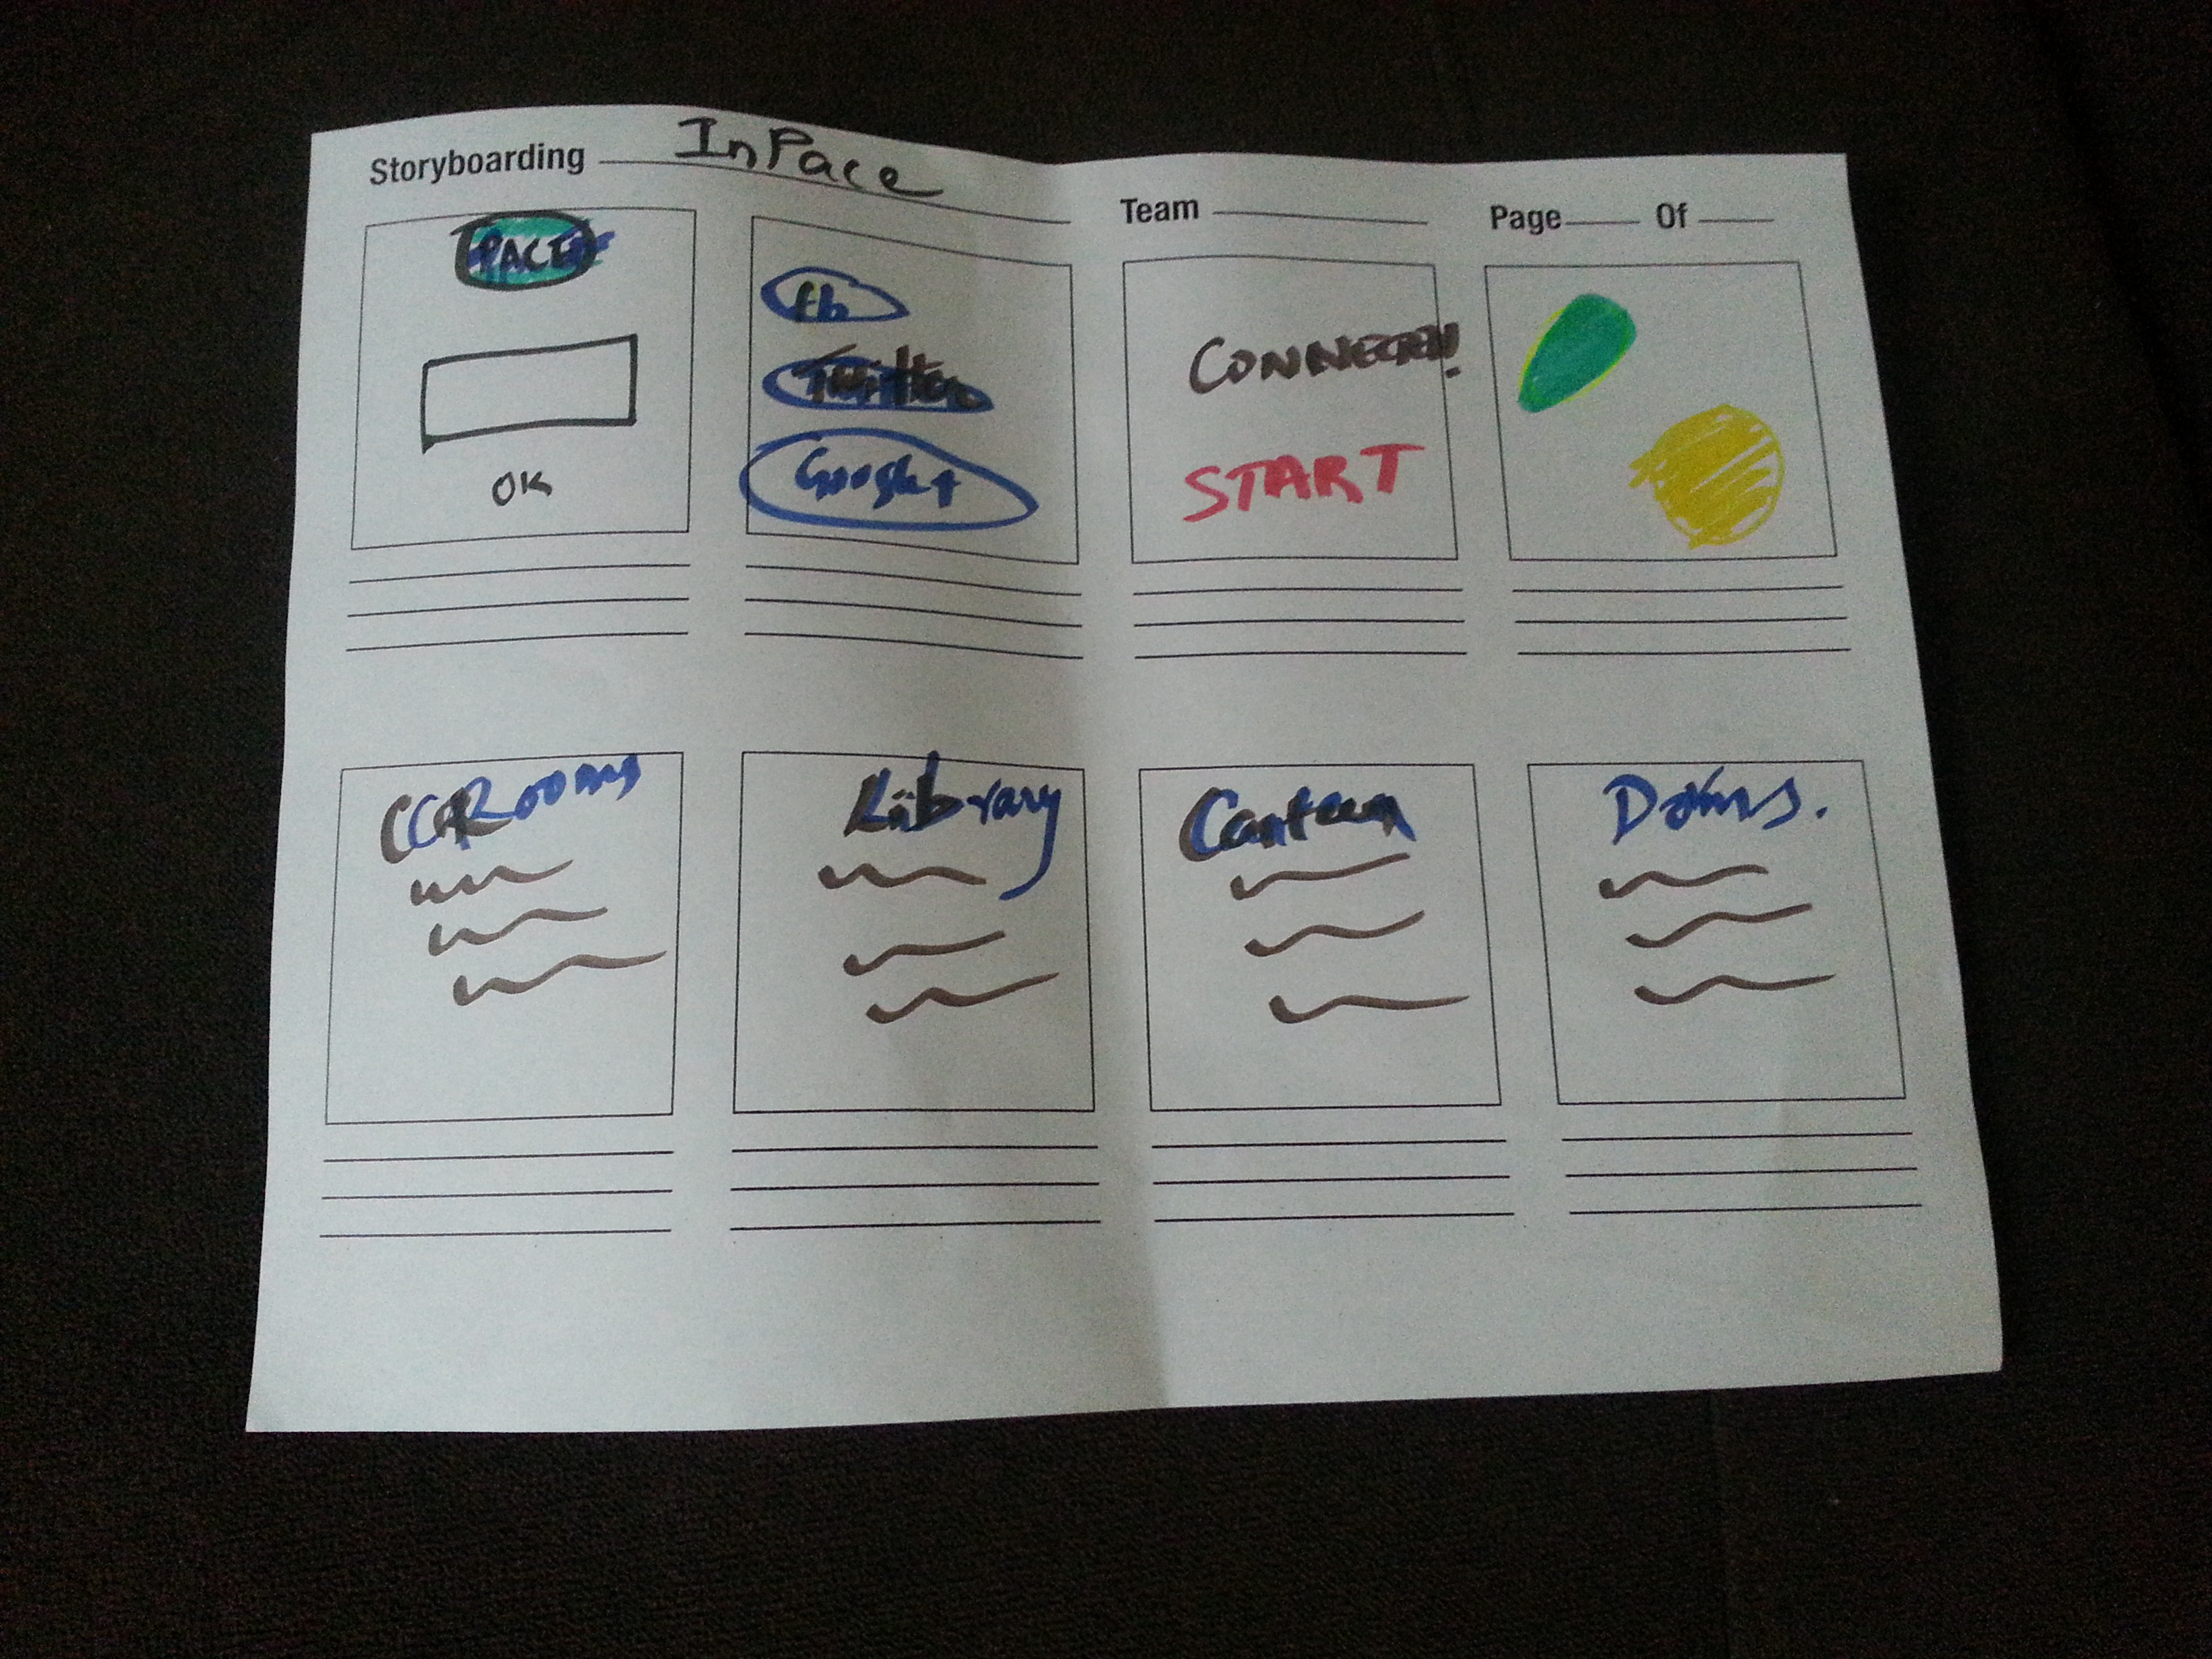 Storyboarding InPace Team Page Of
OK
fb
Twitter
Google+
CONNECT!
START
Library
Canteen